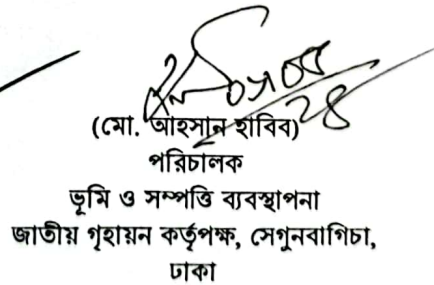 (মো. আহসান হাবিব)
পরিচালক
ভূমি ও সম্পত্তি ব্যবস্থাপনা
জাতীয় গৃহায়ন কর্তৃপক্ষ, সেগুনবাগিচা,
ঢাকা